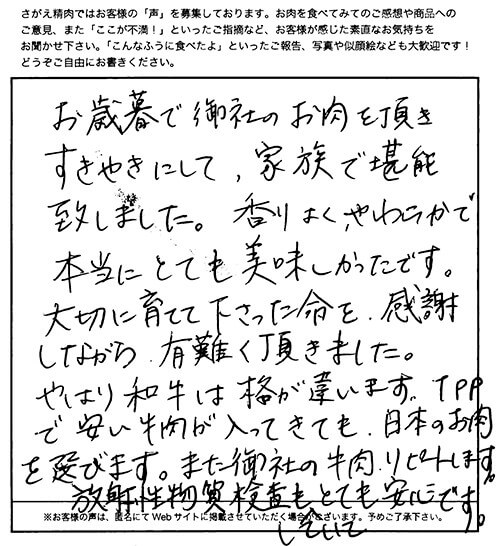 さがえ精肉ではお客様の「声」を募集しております。お肉を食べてみてのご感想や商品への
ご意見、また「ここが不満！」といったご指摘など、お客様が感じた素直なお気持ちを
お聞かせ下さい。「こんなふうに食べたよ」といったご報告、写真や似顔絵なども大歓迎です！
どうぞご自由にお書きください。
お歳暮で御社のお肉を頂き
すきやきにして、家族で堪能
致しました。香りよく、やわらかで
本当にとても美味しかったです。
大切に育てて下さった命を、感謝
しながら、有難く頂きました。
やはり和牛は格が違います。TPP
で安い牛肉が入ってきても、日本のお肉
を選びます。また御社の牛肉、リピートします。
放射性物質検査もとても安心です。
していて
※お客様の声は、匿名にてWebサイトに掲載させていただく場合がございます。予めご了承下さい。